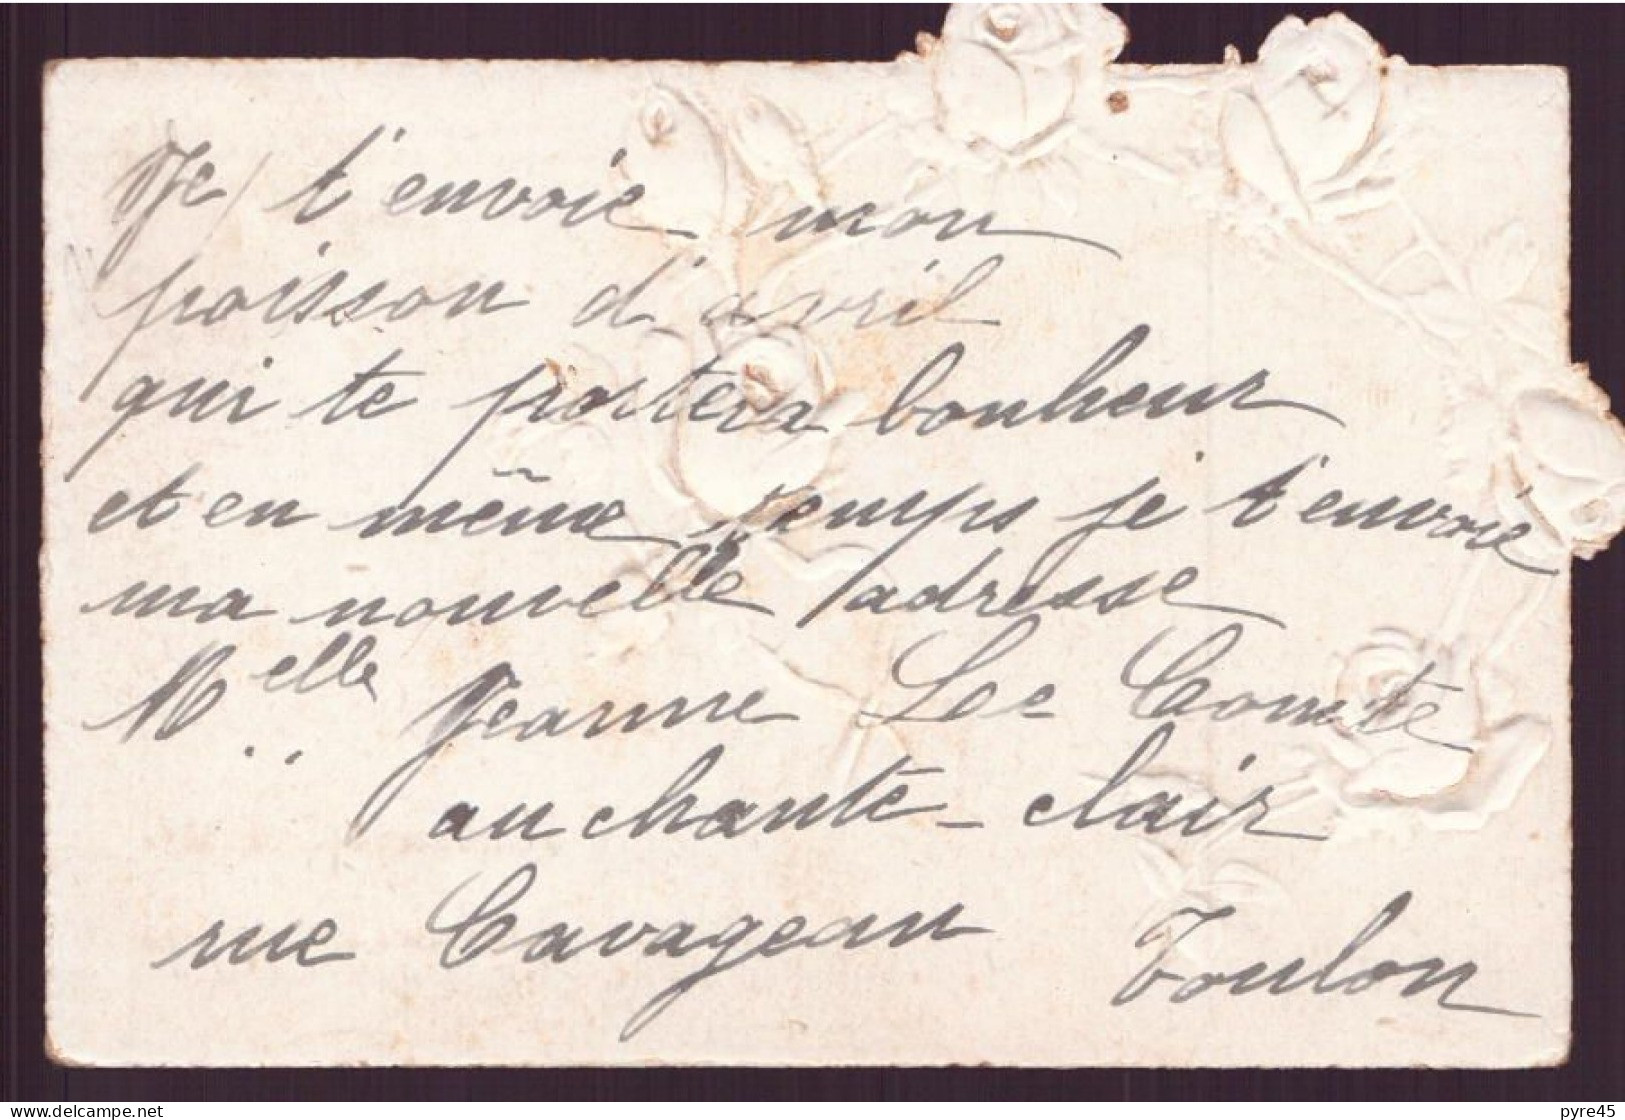 Je t'envoie mon
poisson d'avril
qui te portera bonheur
et en même temps je t'envoie
ma nouvelle adresse
Melle Jeanne Le Comte
au chante-clair
rue Cavageau Toulon
pyre45